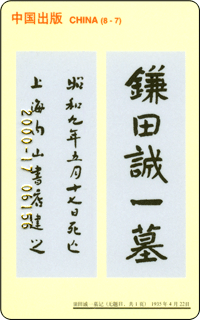 中国出版 CHINA (8 - 7)
鎌田誠一墓
昭和九年五月十七日死亡
上海内山書店建之
2000-17 06156
墓记 共 1 页) 1935 年 4 月 22日